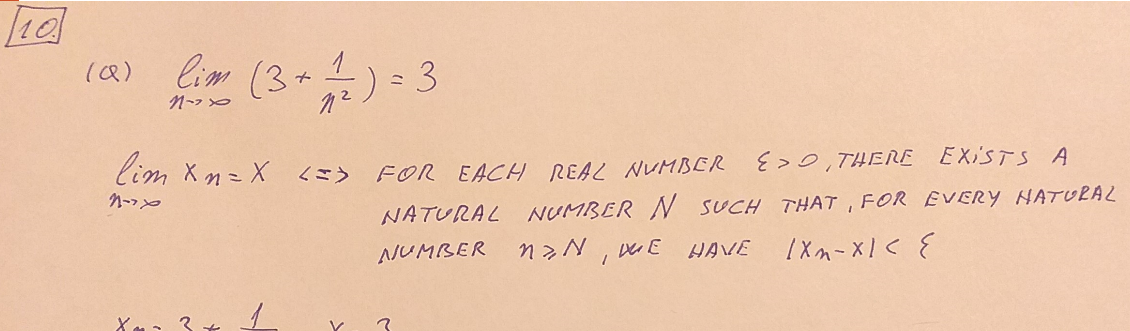 10.
(a) lim n→∞ (3 + 1/n²) = 3
lim n→∞ xn = x <=> FOR EACH REAL NUMBER ε > 0, THERE EXISTS A
NATURAL NUMBER N SUCH THAT, FOR EVERY NATURAL
NUMBER n ≥ N, WE HAVE |xn - x| < ε
xn = 3 + 1